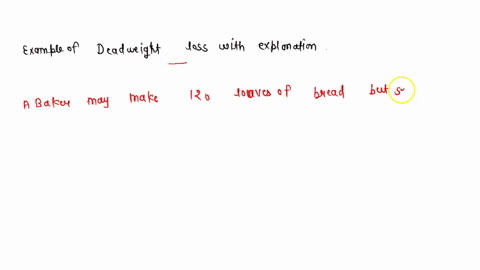 Example of Deadweight loss with explanation.
A Baker may make 120 loaves of bread but s